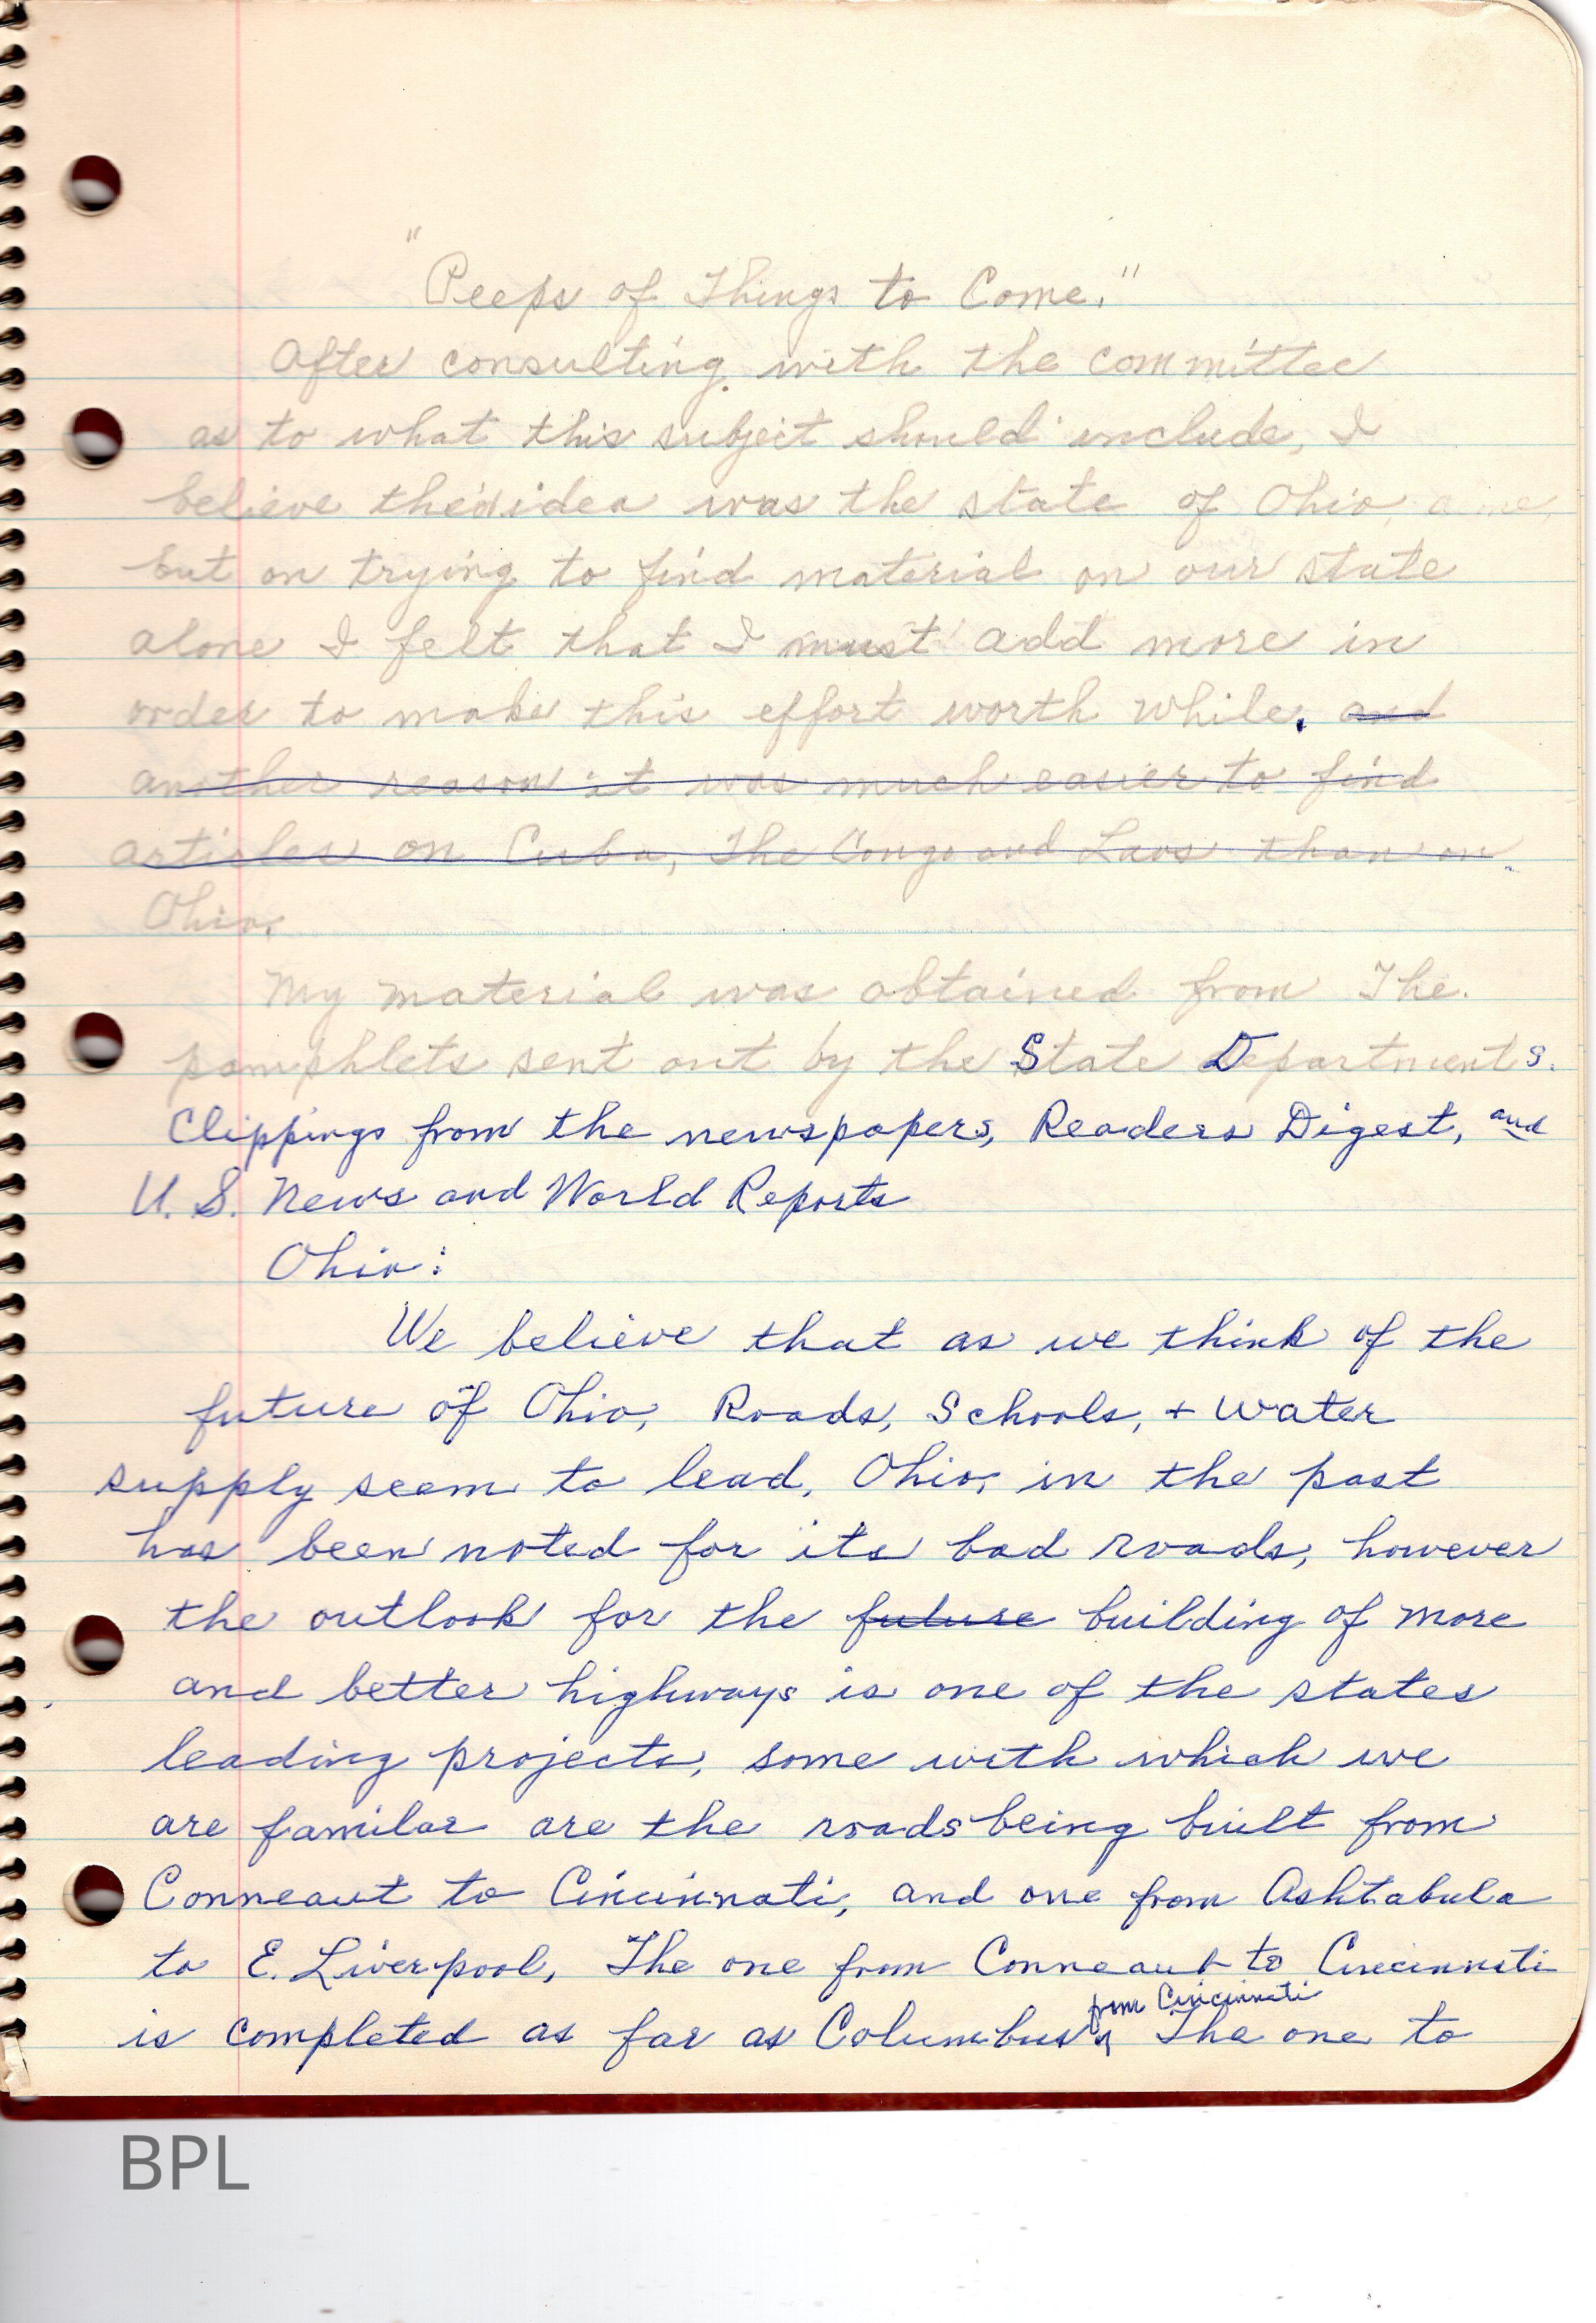 "Peeps of Things to Come."
After consulting with the committee
as to what this subject should include, I
believe the idea was the state of Ohio,
but on trying to find material on our state
alone I felt that I must add more in
order to make this effort worth while. and
another reason it was much easier to find
articles on Cuba, The Congo and Laos than on
Ohio.
My material was obtained from The
pamphlets sent out by the State Departments.
Clippings from the newspapers, Readers Digest, and
U. S. News and World Reports
Ohio:
We believe that as we think of the
future of Ohio, Roads, Schools, + water
supply seem to lead. Ohio, in the past
has been noted for its bad roads, however
the outlook for the future building of more
and better highways is one of the states
leading projects, some with which we
are familar are the roads being built from
Conneaut to Cincinnati, and one from Ashtabula
to E. Liverpool, The one from Conneaut to Cincinnati
is completed as far as Columbus from Cincinnati The one to
BPL